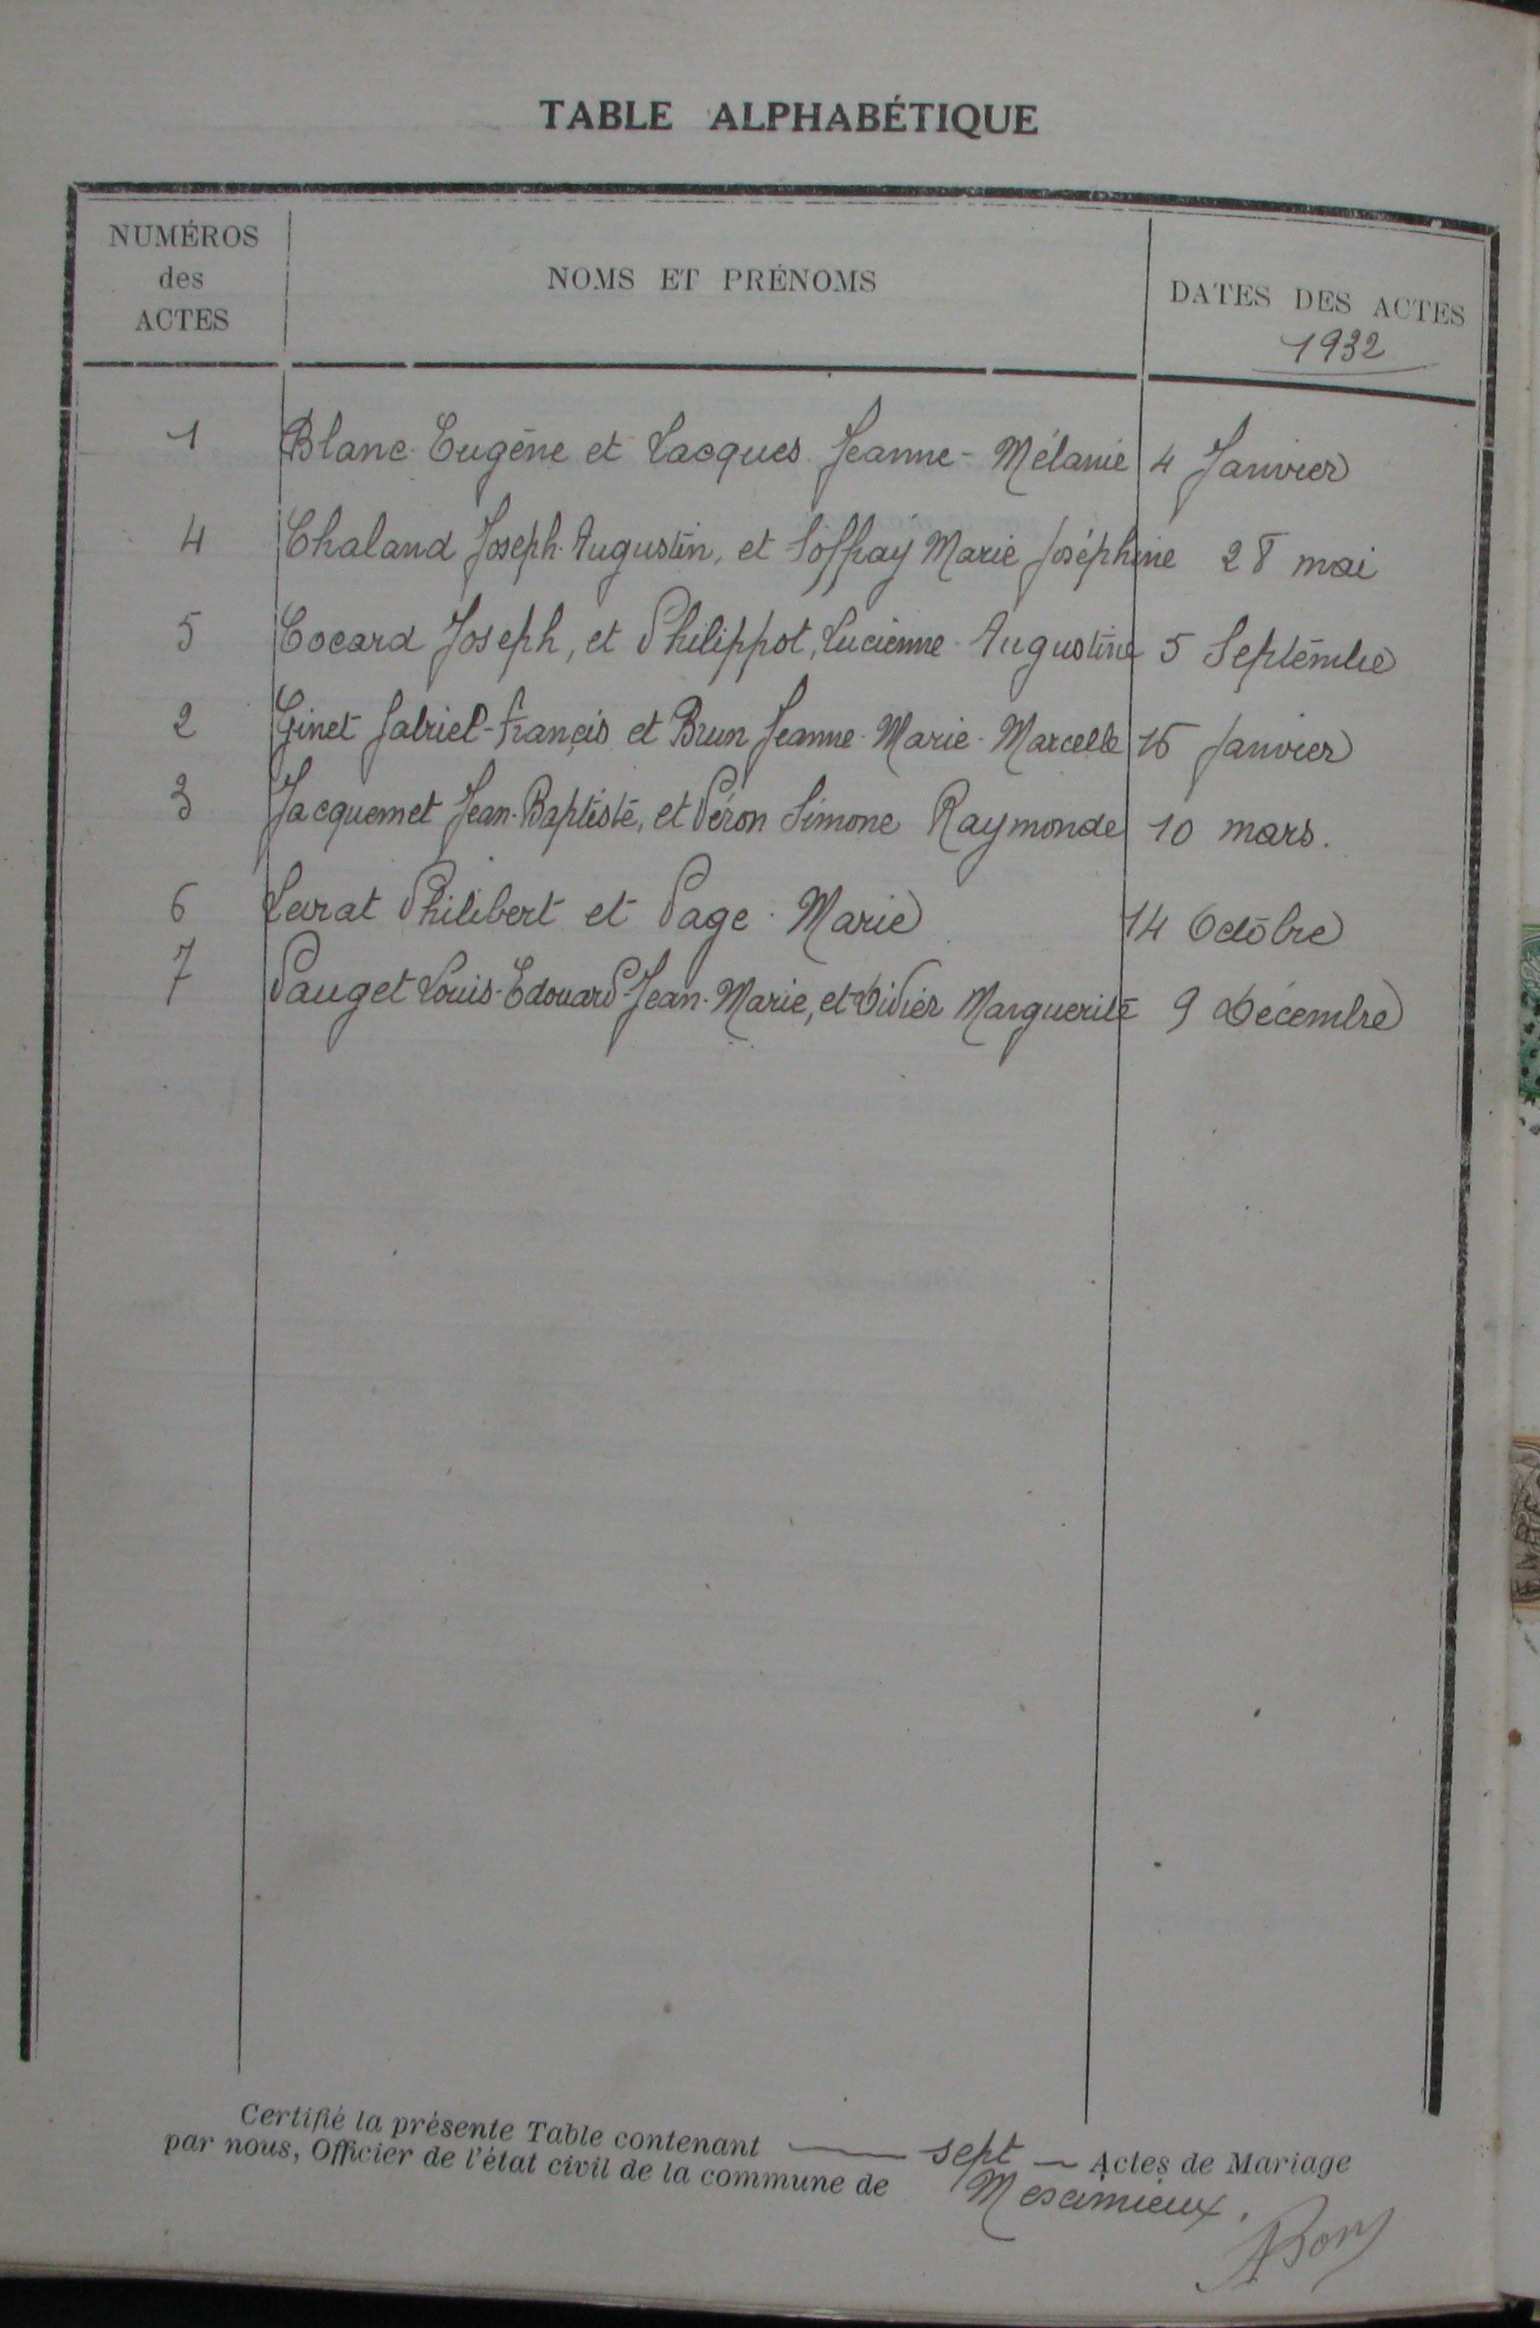 TABLE ALPHABÉTIQUE
NUMÉROS
des
ACTES
NOMS ET PRÉNOMS
DATES DES ACTES
1932
1 Blanc Eugène et Lacques Jeanne-Mélanie 4 Janvier
4 Chaland Joseph-Augustin, et Soffray Marie Joséphine 28 mai
5 Cocard Joseph, et Philippot, Lucienne-Augustine 5 Septembre
2 Ginet Gabriel-Françis et Brun Jeanne-Marie-Marcelle 16 Janvier
3 Jacquemet Jean-Baptiste, et Péron Simone Raymonde 10 mars.
6 Larat Philibert et Page Marie 14 Octobre
7 Pauget Louis-Edouard-Jean-Marie, et Didier Marguerite 9 Décembre
Certifié la présente Table contenant — sept — Actes de Mariage
par nous, Officier de l'état civil de la commune de Meximieux.